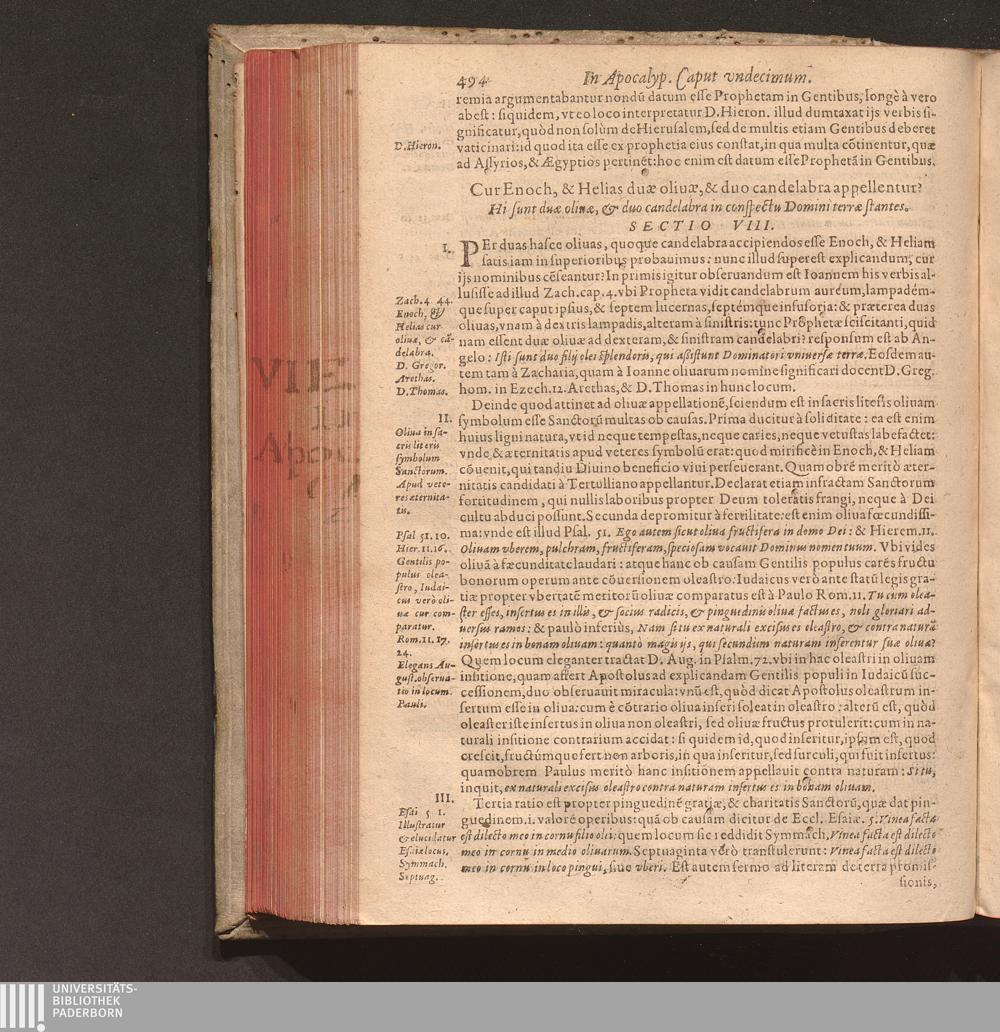 494 In Apocalyp. Caput vndecimum.
remia argumentabantur nondũ datum eſſe Prophetam in Gentibus, longè à vero
abeſt: ſiquidem, vt eo loco interpretatur D. Hieron. illud dumtaxat ijs verbis ſi-
gnificatur, quòd non ſolùm de Hieruſalem, ſed de multis etiam Gentibus deberet
D. Hieron.
vaticinari: id quod ita eſſe ex prophetia eius conſtat, in qua multa cõtinentur, quæ
ad Aſſyrios, & Ægyptios pertinẽt: hoc enim eſt datum eſſe Prophetã in Gentibus.
Cur Enoch, & Helias duæ oliuæ, & duo candelabra appellentur?
Hi ſunt duæ oliuæ, & duo candelabra in conſpectu Domini terræ ſtantes.
SECTIO VIII.
I.
PEr duas haſce oliuas, quoque candelabra accipiendos eſſe Enoch, & Heliam
ſatis iam in ſuperioribus probauimus: nunc illud ſupereſt explicandum, cur
ijs nominibus cẽſeantur? In primis igitur obſeruandum eſt Ioannem his verbis al-
luſiſſe ad illud Zach. cap. 4. vbi Propheta vidit candelabrum aureum, lampadém-
que ſuper caput ipſius, & ſeptem lucernas, ſeptémque infuſoria: & præterea duas
oliuas, vnam à dextris lampadis, alteram à ſiniſtris: tunc Prophetæ ſciſcitanti, quid
nam eſſent duæ oliuæ ad dexteram, & ſiniſtram candelabri? reſponſum eſt ab An-
gelo: Iſti ſunt duo filij olei ſplendoris, qui aſsiſtunt Dominatori vniuerſæ terræ. Eoſdem au-
tem tam à Zacharia, quam à Ioanne oliuarum nomine ſignificari docent D. Greg.
hom. in Ezech. 12. Arethas, & D. Thomas in hunc locum.
Zach. 4. 44.
Enoch, &
Helias cur
oliuæ, & cã-
delabra.
D. Gregor.
Arethas.
D. Thomas.
II.
Deinde quod attinet ad oliuæ appellationẽ, ſciendum eſt in ſacris literis oliuam
ſymbolum eſſe Sanctorũ multas ob cauſas. Prima ducitur à ſoliditate: ea eſt enim
huius ligni natura, vt id neque tempeſtas, neque caries, neque vetuſtas labefactet:
vnde, & æternitatis apud veteres ſymbolũ erat: quod mirificè in Enoch, & Heliam
cõuenit, qui tandiu Diuino beneficio viui perſeuerant. Quamobrẽ meritò æter-
nitatis candidati à Tertulliano appellantur. Declarat etiam infractam Sanctorum
fortitudinem, qui nullis laboribus propter Deum toleratis frangi, neque à Dei
cultu abduci poſſunt. Secunda depromitur à fertilitate: eſt enim oliua fœcundiſſi-
ma: vnde eſt illud Pſal. 51. Ego autem ſicut oliua fructifera in domo Dei: & Hierem. 11.
Oliuam vberem, pulchram, fructiferam, ſpecioſam vocauit Dominus nomen tuum. Vbi vides
oliuã à fæcunditate laudari: atque hanc ob cauſam Gentilis populus carẽs fructu
bonorum operum ante cõuerſionem oleaſtro: Iudaicus verò ante ſtatũ legis gra-
tiæ propter vbertatẽ meritorũ oliuæ comparatus eſt à Paulo Rom. 11. Tu cum olea-
ſter eſſes, inſertus es in illis, & ſocius radicis, & pinguedinis oliuæ factus es, noli gloriari ad-
uerſus ramos: & paulò inferiùs, Nam ſi tu ex naturali exciſus es oleaſtro, & contra naturã
inſertus es in bonam oliuam: quantò magis ijs, qui ſecundùm naturam inſerentur ſuæ oliuæ?
Quem locum eleganter tractat D. Aug. in Pſalm. 72. vbi in hac oleaſtri in oliuam
inſitione, quam affert Apoſtolus ad explicandam Gentilis populi in Iudaicũ ſuc-
ceſſionem, duo obſeruauit miracula: vnũ eſt, quòd dicat Apoſtolus oleaſtrum in-
ſertum eſſe in oliua: cum è cõtrario oliua inſeri ſoleat in oleaſtro: alterũ eſt, quòd
oleaſter iſte inſertus in oliua non oleaſtri, ſed oliuæ fructus protulerit: cum in na-
turali inſitione contrarium accidat: ſi quidem id, quod inſeritur, ipſum eſt, quod
creſcit, fructúmque fert non arboris, in qua inſeritur, ſed ſurculi, qui fuit inſertus:
quamobrem Paulus meritò hanc inſitionem appellauit contra naturam: Si tu,
inquit, ex naturali exciſus oleaſtro contra naturam inſertus es in bonam oliuam.
Oliua in ſa-
cris literis
ſymbolum
Sanctorum.
Apud vete-
res æternita-
tis.
Pſal. 51. 10.
Hier. 11. 16.
Gentilis po-
pulus olea-
ſtro, Iudai-
cus verò oli-
uæ cur com-
paratur.
Rom. 11. 17.
24.
Elegans Au-
guſt. obſerua-
tio in locum
Pauli.
III.
Tertia ratio eſt propter pinguedinẽ gratiæ, & charitatis Sanctorũ, quæ dat pin-
guedinem .i. valorẽ operibus: quã ob cauſam dicitur de Eccl. Eſaiæ. 5. Vinea facta
eſt dilecto meo in cornu filio olei: quem locum ſic reddidit Symmach, Vinea facta eſt dilecto
meo in cornu in medio oliuarum. Septuaginta verò tranſtulerunt: Vinea facta eſt dilecto
meo in cornu in loco pingui, ſiue vberi. Eſt autem ſermo ad literam de terra promiſ-
ſionis,
Eſai 5 1.
Illuſtratur
& elucidatur
Eſaiæ locus.
Symmach.
Septuag.
UNIVERSITÄTS-
BIBLIOTHEK
PADERBORN